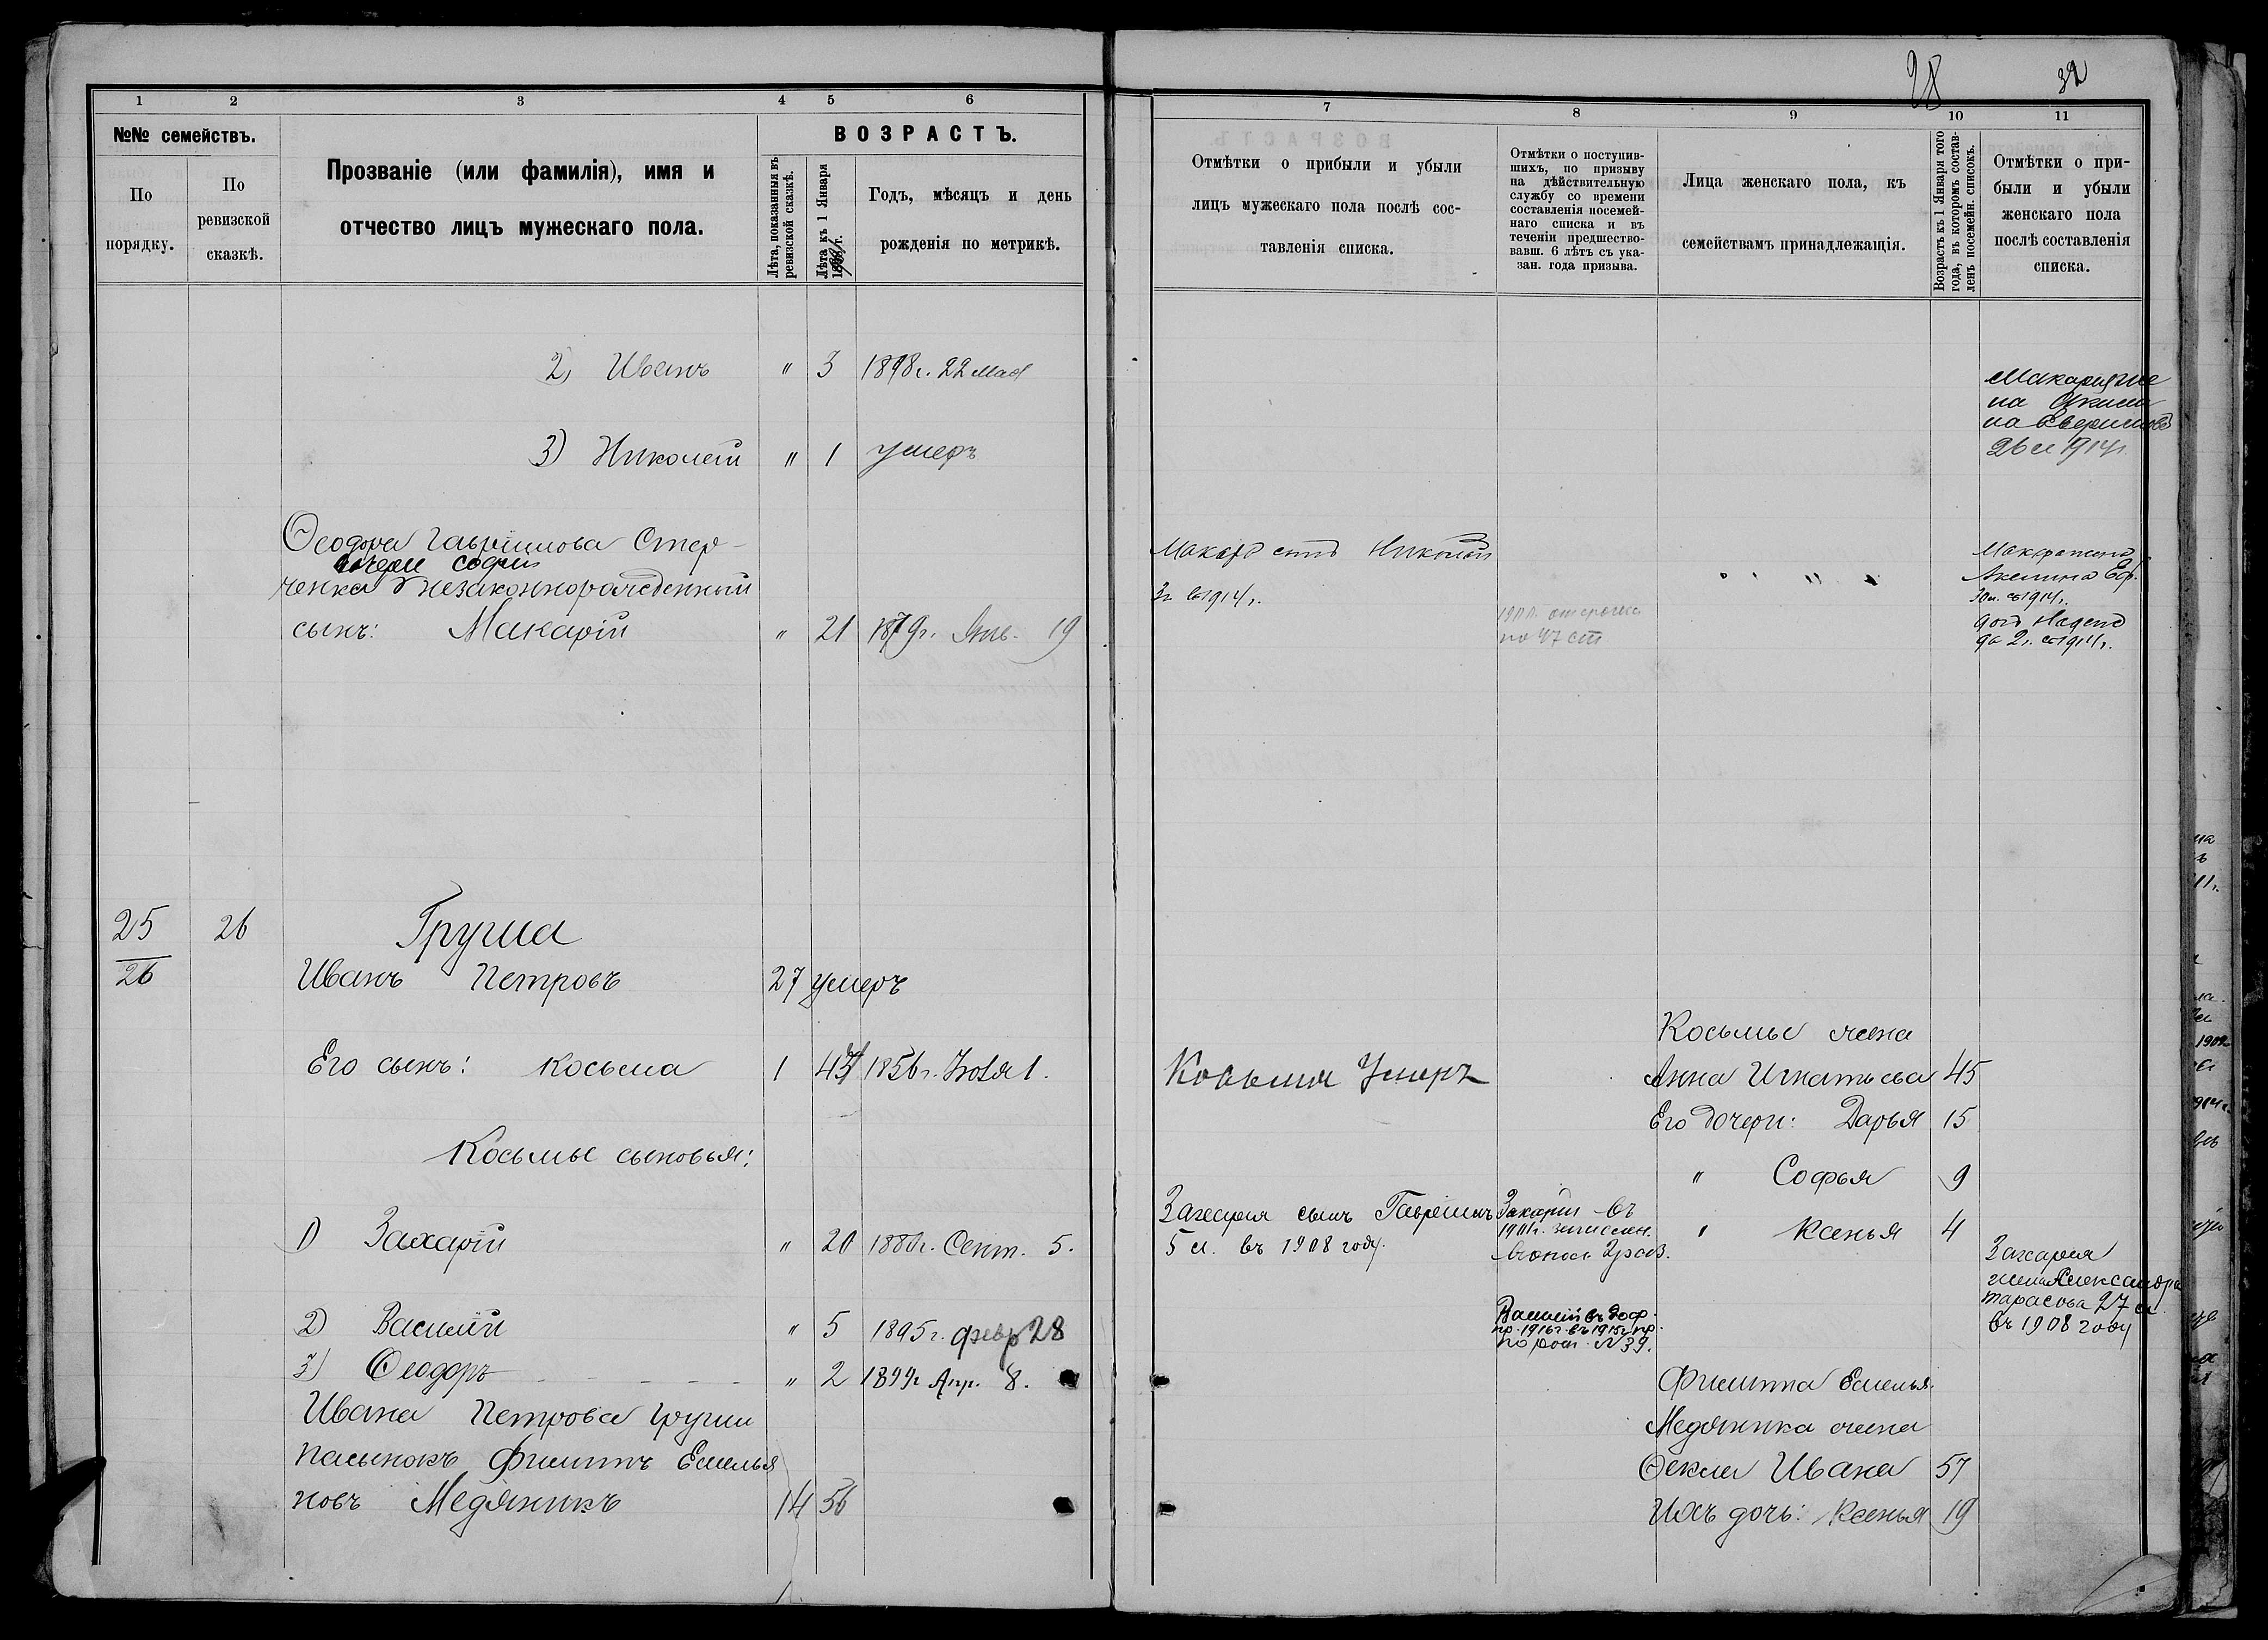 28
32
1
2
3
4
5
6
№№ семействъ.
По порядку.
По ревизской сказкѣ.
Прозваніе (или фамилія), имя и
отчество лицъ мужескаго пола.
ВОЗРАСТЪ.
Лѣта, показанныя въ
ревизской сказкѣ.
Лѣта къ 1 Января
Годъ, мѣсяцъ и день
рожденія по метрикѣ.
7
8
9
10
11
Отмѣтки о прибыли и убыли
лицъ мужескаго пола послѣ сос-
тавленія списка.
Отмѣтки о поступив-
шихъ, по призыву
на дѣйствительную
службу со времени
составленія посемей-
наго списка и въ
теченіи предшество-
вавш. 6 лѣтъ съ ука-
зан. года призыва.
Лица женскаго пола, къ
семействамъ принадлежащія.
Возрастъ къ 1 Января того
года, въ которомъ состав-
ленъ посемейн. списокъ.
Отмѣтки о при-
были и убыли
женскаго пола
послѣ составленія
списка.
2) Иванъ " 3 1898 г. 22 Мая
3) Николай " 1 умеръ
26 л 1914 г.
Ѳеодора Гаврилова Стер-
дочери Софіи
ченка незаконнорожденный
сынъ: Макарій " 21 1879 г. Янв. 19
Макар сынъ Николай
3 г. въ 1914 г.
по 47 ст
Акилина Еф.
30 л. въ 1914 г.
дочь Надеж
да 2 г. въ 1914 г.
25 26 Груша
26 Иванъ Петровъ 27 умеръ
Его сынъ: Косьма 1 1856 г. Іюля 1.
Косьма Умеръ
Косьмы жена
Анна Игнатьева 45
Его дочери: Дарья 15
" Софья 9
" Ксенья 4
Косьмы сыновья:
1) Захарій " 20 1880 г. Сент. 5.
Захарія сынъ Гавріилъ
5 л. въ 1908 году.
Захарій въ
Захарія
жена Александра
Тарасова 27 л.
въ 1908 году
2) Василій " 5 1895 г. февр 28
Василій въ
3) Ѳеодоръ " 2 1899 г. Апр. 8.
Ивана Петрова Груши
пасынокъ Филиппъ Емелья
новъ Медяникъ 14 56
Филиппа Емелья.
Медяника жена
Ѳекла Ивана 57
Ихъ дочь: Ксенья 19